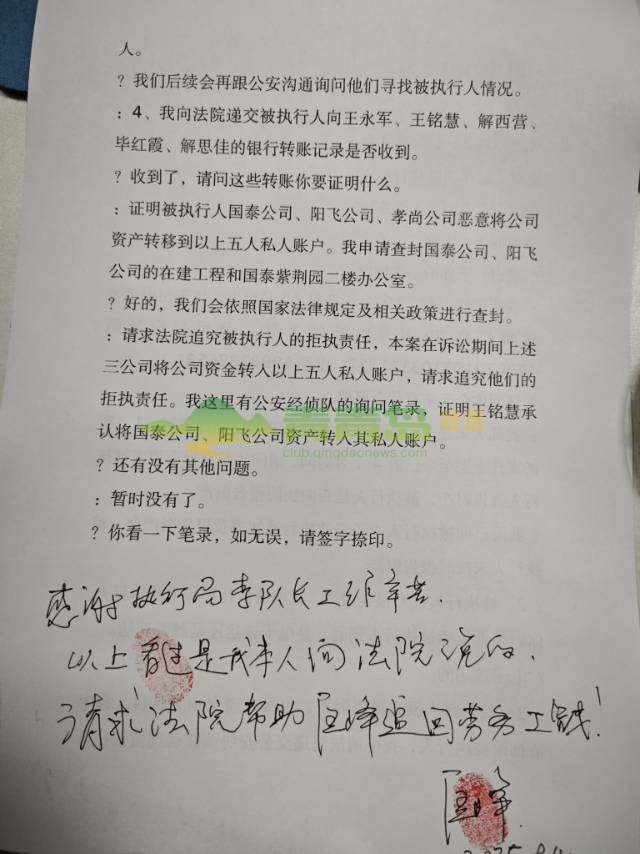 人。
？我们后续会再跟公安沟通询问他们寻找被执行人情况。
：4、我向法院递交被执行人向王永军、王铭慧、解西营、
毕红霞、解思佳的银行转账记录是否收到。
？收到了，请问这些转账你要证明什么。
：证明被执行人国泰公司、阳飞公司、孝尚公司恶意将公司
资产转移到以上五人私人账户。我申请查封国泰公司、阳飞
公司的在建工程和国泰紫荆园二楼办公室。
？好的，我们会依照国家法律规定及相关政策进行查封。
：请求法院追究被执行人的拒执责任，本案在诉讼期间上述
三公司将公司资金转入以上五人私人账户，请求追究他们的
拒执责任。我这里有公安经侦队的询问笔录，证明王铭慧承
认将国泰公司、阳飞公司资产转入其私人账户。
青青岛社区
club.qingdaonews.com
？还有没有其他问题。
：暂时没有了。
？你看一下笔录，如无误，请签字捺印。
感谢执行局李队长工作辛苦.
以上看过是我本人向法院说的.
请求法院帮助匡峰追回劳务工钱！
匡峰